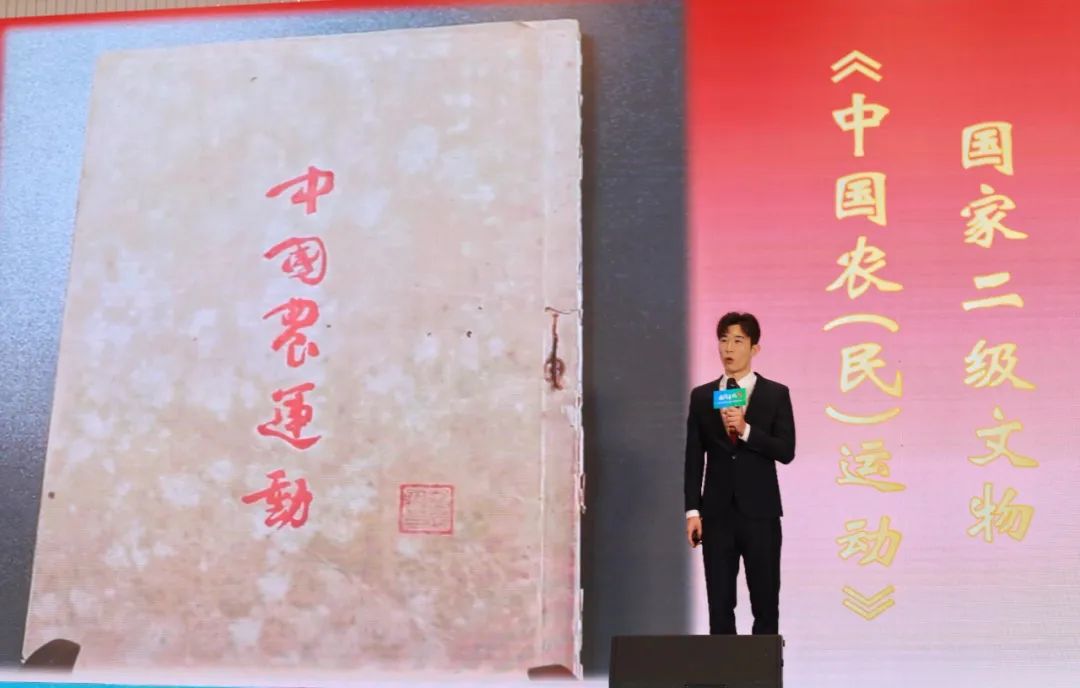 国家二级文物
《中国农(民)运动》
中國農運動